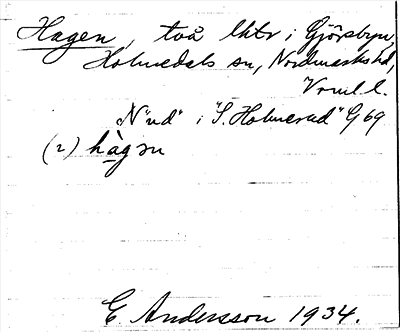 Hagen, två lhtr i Gjörsbyn,
Holmedals sn, Nordmarks hd,
Vrml. l.
N"ud" i "S. Holmerud" G 69
(2) hàgṇ
E Andersson 1934.